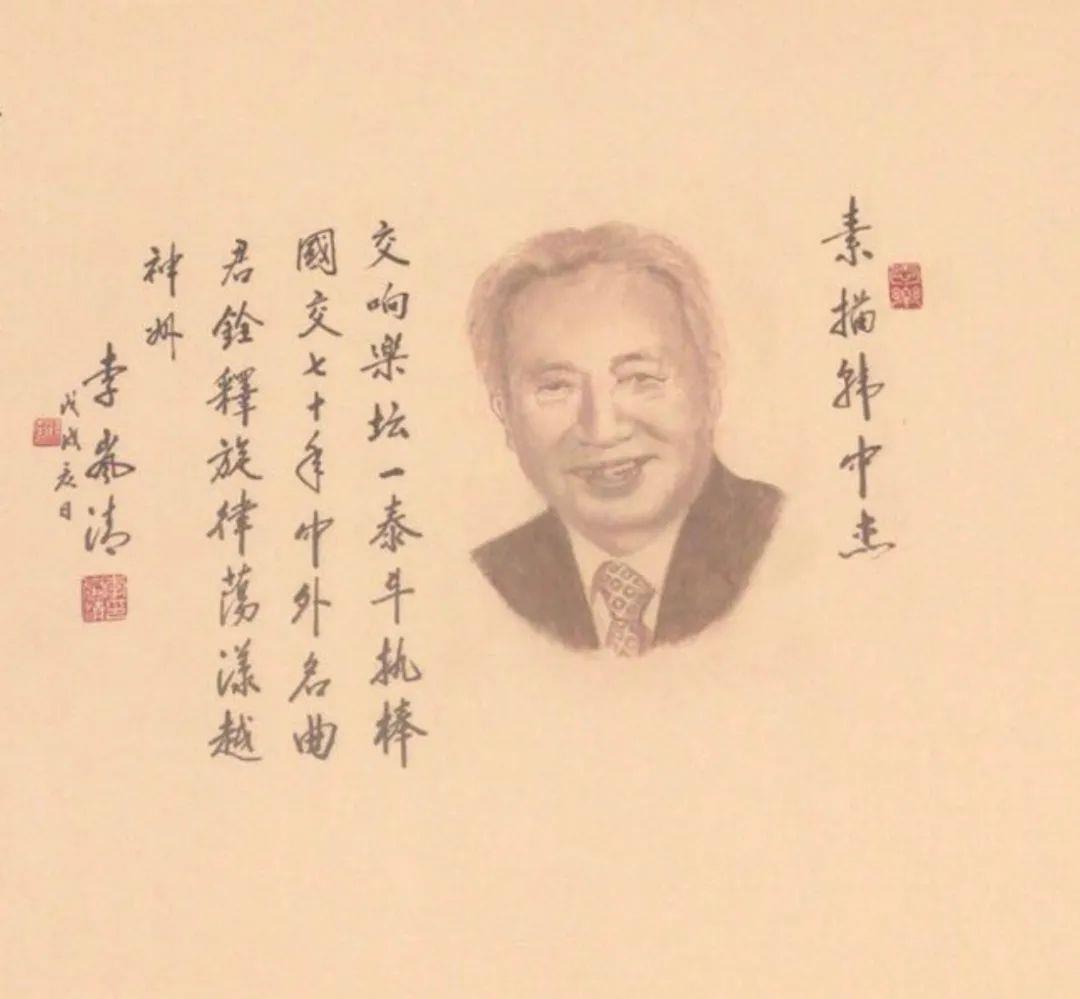 素描韩中杰
交响樂坛一泰斗执棒
國交七十年中外名曲
君銓釋旋律蕩漾越
神州
李岚清
戊戌夏日